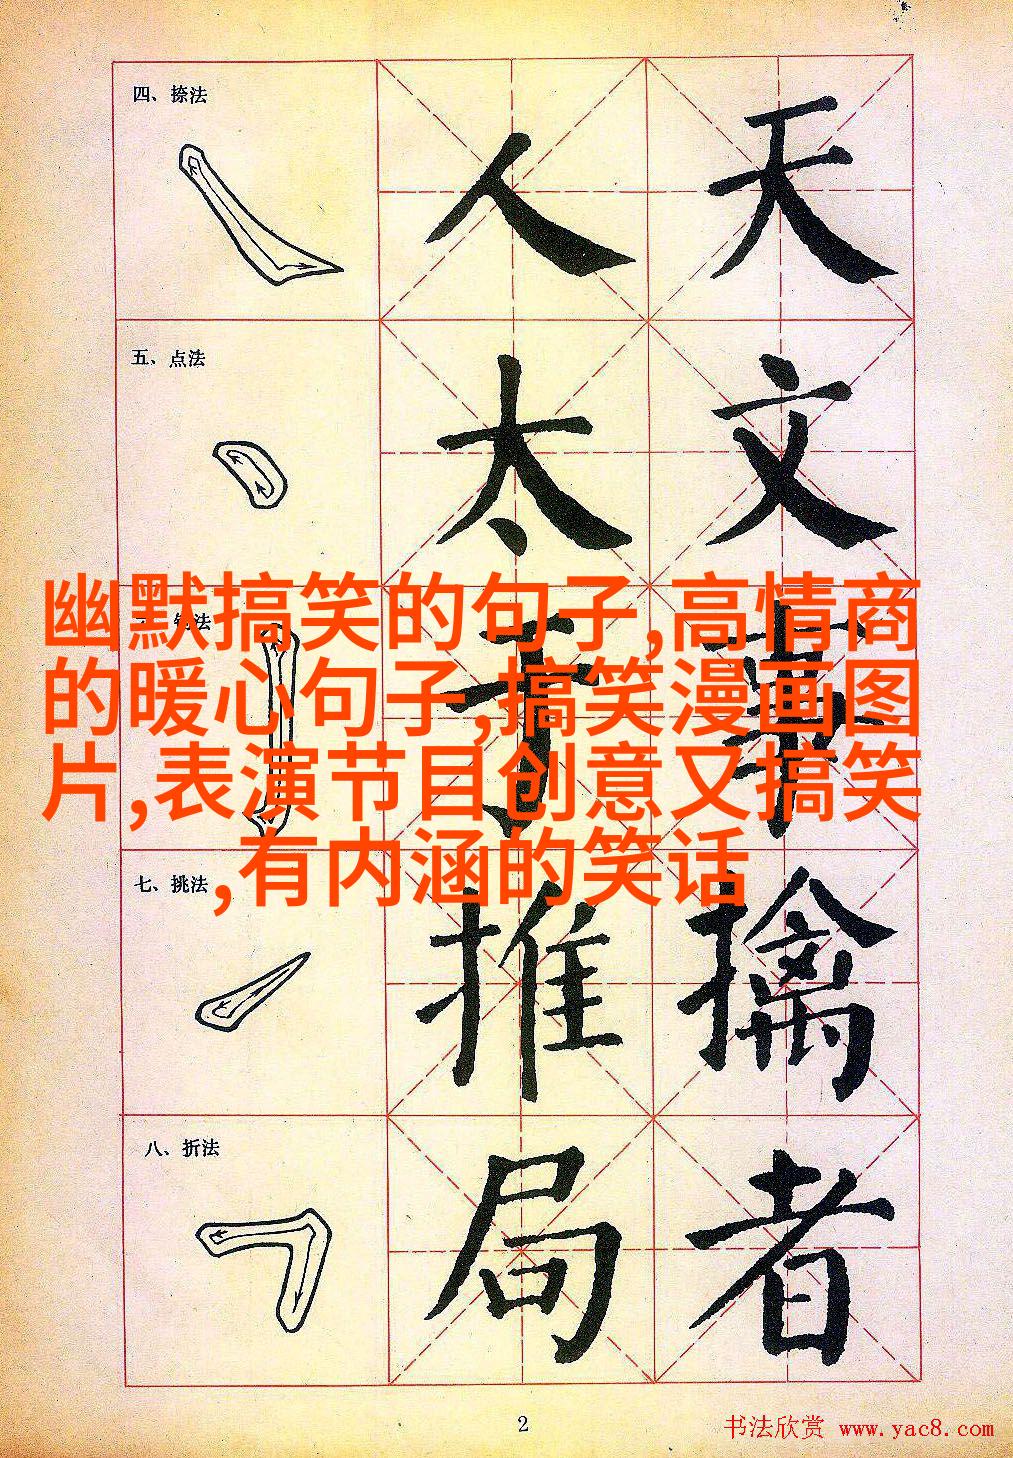 四、捺法
人 天
五、点法
太 文
幽默搞笑的句子,高情商
的暖心句子,搞笑漫画图
片,表演节目创意又搞笑
,有内涵的笑话
法
七、挑法
推 擒
八、折法
局 者
2
书法欣赏 www.yac8.com